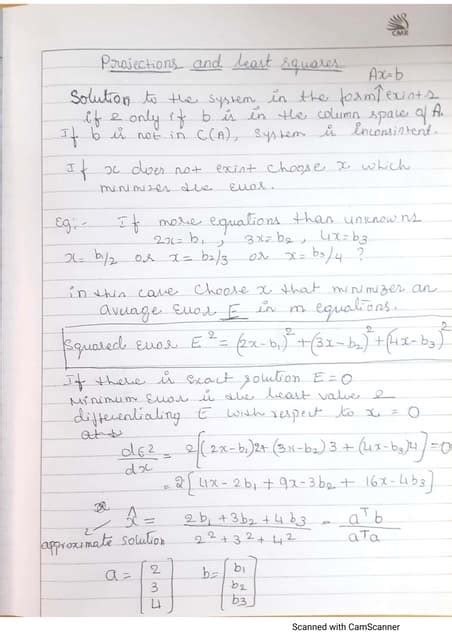 CMR
Projections and least squares
Ax=b
Solution to the system in the form ↑ exists
if & only if b is in the column space of A.
If b is not in C(A), system is inconsistent.
If x does not exist choose x which
minimizes the error.
Eg:- If more equations than unknowns
2x=b₁ , 3x=b₂ , 4x=b₃
x=b₁/2 or x=b₂/3 or x=b₃/4 ?
in this case choose x that minimizes an
average error E in m equations.
Squared error E² = (2x-b₁)² + (3x-b₂)² + (4x-b₃)²
If there is exact solution E=0
Minimum error is the least value &
differentiating E with respect to x = 0
dE²/dx = 2[(2x-b₁)2+(3x-b₂)3+(4x-b₃)4]=0
= 2[4x-2b₁+9x-3b₂+16x-4b₃]
x̂ = 2b₁+3b₂+4b₃ / 2²+3²+4² = aᵀb / aᵀa
approximate solution
a = [2 3 4] b = [b₁ b₂ b₃]
Scanned with CamScanner